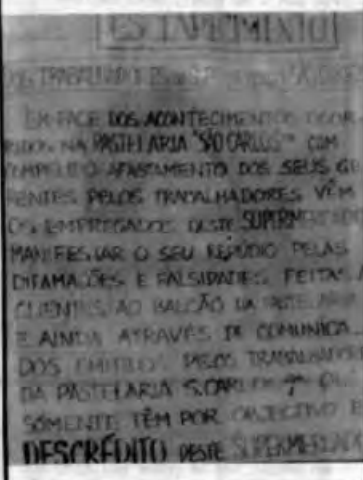 ESCLARECIMENTO
OS TRABALHADORES
EM FACE DOS ACONTECIMENTOS OCOR
RIDOS NA PASTELARIA "SÃO CARLOS" COM
COMPELIDO AFASTAMENTO DOS SEUS GE
RENTES PELOS TRABALHADORES VÊM
OS EMPREGADOS DESTE SUPERMERCADO
MANIFESTAR O SEU REPÚDIO PELAS
DIFAMAÇÕES E FALSIDADES FEITAS A
CLIENTES AO BALCÃO DA PASTELARIA
E AINDA ATRAVÉS DE COMUNICA
DOS EMITIDOS PELOS TRABALHADORES
DA PASTELARIA S. CARLOS QUE
SÓMENTE TÊM POR OBJECTIVO E
DESCRÉDITO DESTE SUPERMERCADO